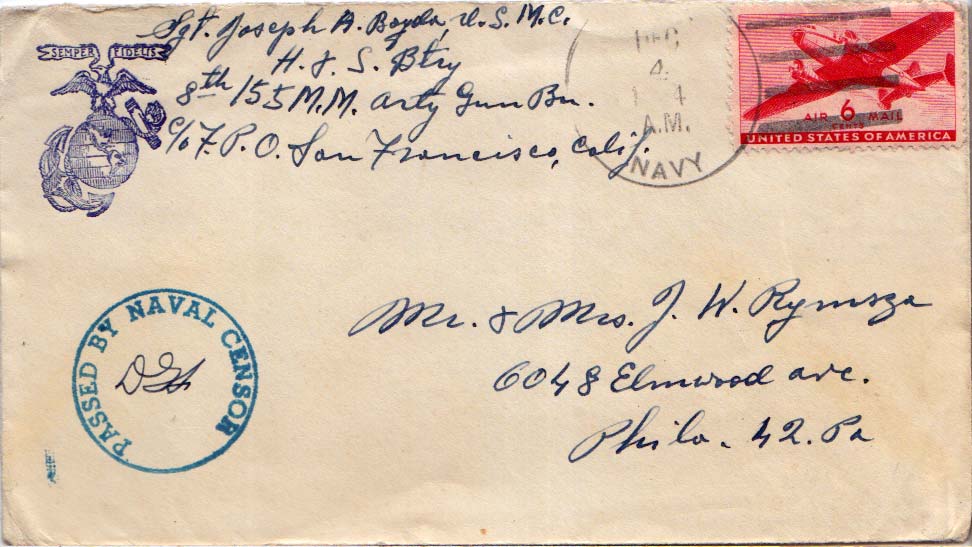 Sgt. Joseph A. Bayda, U.S.M.C.
H. & S. Btry
8th 155 M.M. Arty Gun Bn.
c/o F.P.O. San Francisco, Calif.
SEMPER FIDELIS
DEC
4
1 4
A.M.
NAVY
AIR 6 MAIL
CENTS
UNITED STATES OF AMERICA
PASSED BY NAVAL CENSOR
Mr. & Mrs. J. W. Rymsza
6048 Elmwood ave.
Phila. 42. Pa